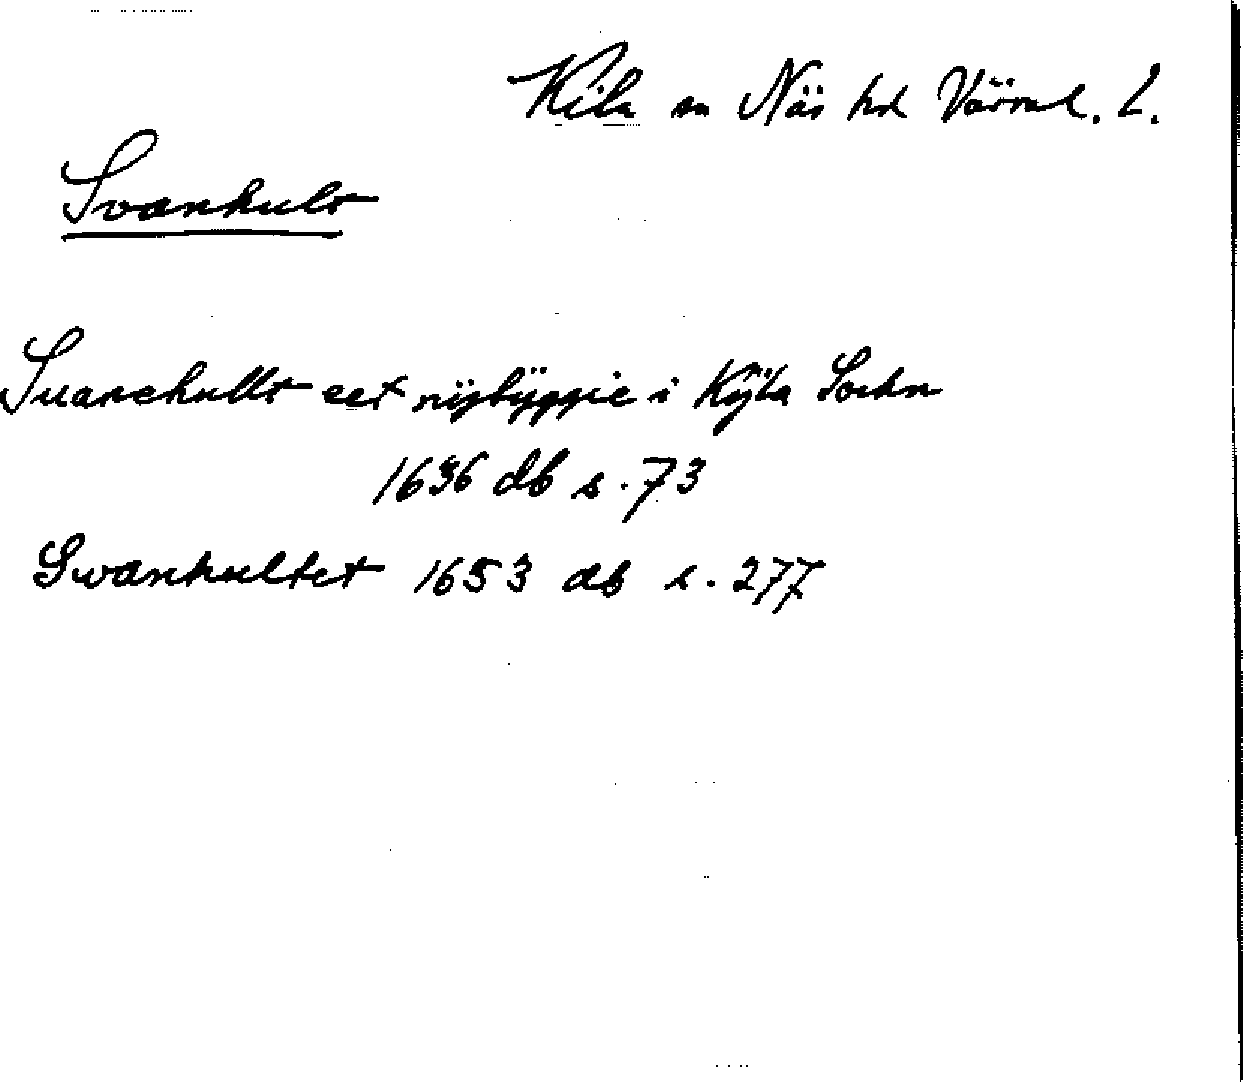 Kila sn Näs hd Värml. L.
Svanhult
Suanehullt eet nÿbÿggie i Kÿla Sochn
1636 db s. 73
Swanhultet 1653 db s. 277